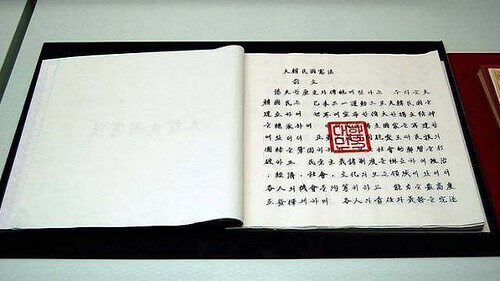 大韓民國憲法
前文
悠久한 歷史와 傳統에 빛나는 우리들 大
韓國民은 己未三一運動으로 大韓民國을
建立하여 世界에 宣布한 偉大한 獨立精神
을 繼承하여 國家를 再建함
에 있어서 同胞愛로써 民族의
團結을 鞏固히 하며 社會的 弊習을 打
破하고 民主主義諸制度를 樹立하여 政治
, 經濟, 社會, 文化의 모든 領域에 있어서
各人의 機會를 均等히 하고 能力을 最高度
로 發揮케 하며 各人의 責任과 義務를